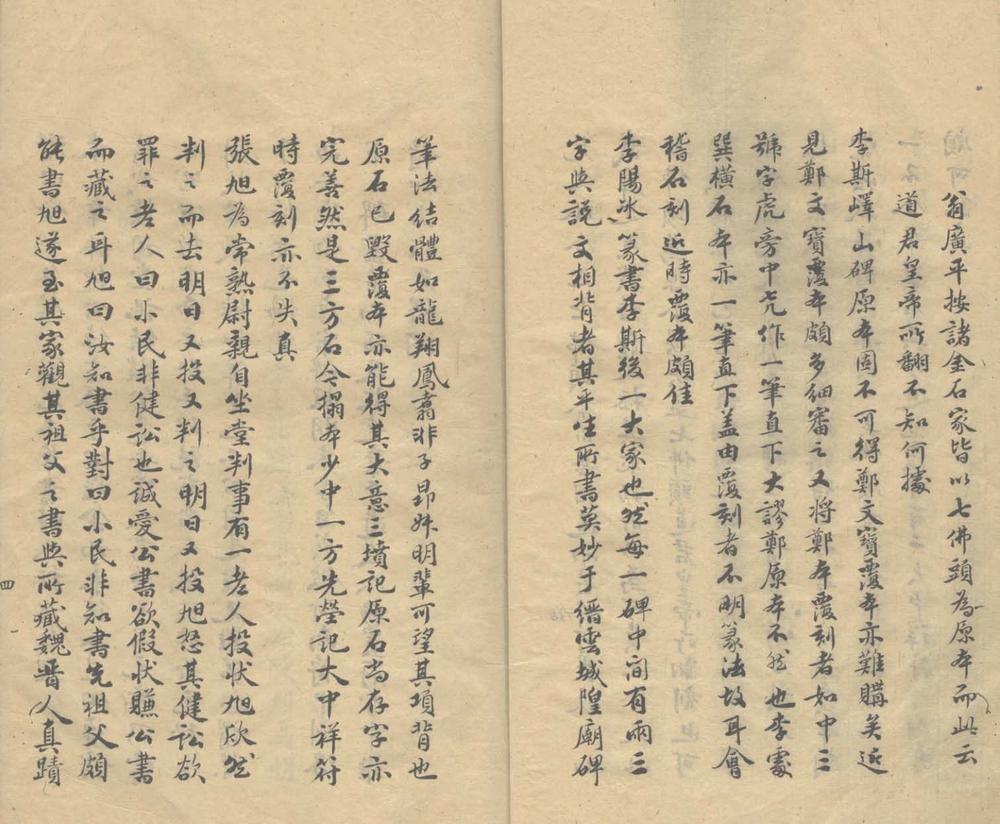 翁廣平按諸金石家皆以七佛頭為原本而此云
道君皇帝所翻不知何據
李斯嶧山碑原本固不可得鄭文寶覆本亦難購矣近
見鄭文寶覆本頗多細審之又將鄭本覆刻者如中三
號字虎旁中七作一筆直下大謬鄭原本不然也李處
巽橫石本亦一筆直下蓋由覆刻者不明篆法故耳會
稽石刻近時覆本頗佳
李陽冰篆書李斯後一大家也然每一碑中間有兩三
字與說文相背者其平生所書莫妙于縉雲城隍廟碑
筆法結體如龍翔鳳翥非子昂姝明輩可望其項背也
原石已毀覆本亦能得其大意三墳記原石尚存字亦
完善然是三方石今搨本少中一方先塋記大中祥符
時覆刻亦不失真
張旭為常熟尉親自坐堂判事有一老人投狀旭欣然
判之而去明日又投又判之明日又投旭怒其健訟欲
罪之老人曰小民非健訟也誠愛公書欲假狀賺公書
而藏之耳旭曰汝知書乎對曰小民非知書先祖父頗
能書旭遂至其家觀其祖父之書與所藏魏晉人真蹟
四